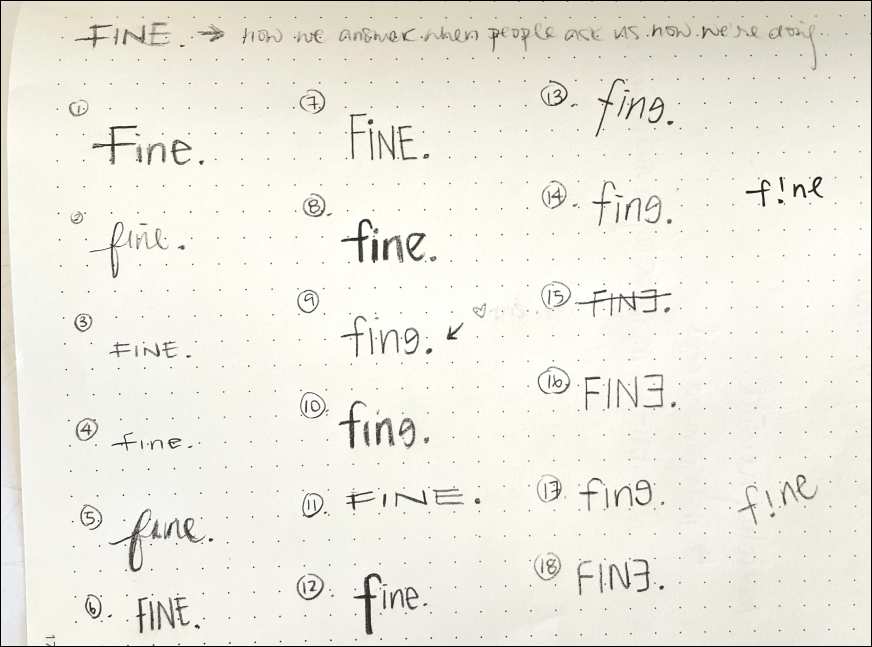 FINE. → how we answer when people ask us how we're doing.
① Fine.
② fine.
③ FINE.
④ fine.
⑤ fine.
⑥ FINE.
⑦ FiNE.
⑧ fine.
⑨ finɘ. ↙ ♡
⑩ finɘ.
⑪ FINE.
⑫ fine.
⑬ finɘ.
⑭ finɘ.
f!ne
⑮ FINƎ.
⑯ FINƎ.
⑰ finɘ.
f!ne
⑱ FINƎ.
17